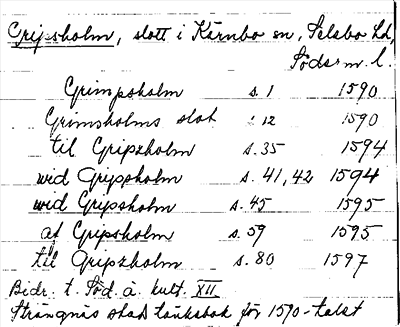 Gripsholm, slott i Kärnbo sn, Selebo hd,
Söderm. l.
Grimpsholm s. 1 1590
Grimsholms slot s. 12 1590
til Gripzholm s. 35 1594
wid Grippsholm s. 41, 42 1594
wid Gripsholm s. 45 1595
af Gripsholm s. 59 1595
til Gripzholm s. 80 1597
Bidr. t. Söd. ä. kult. XII
Strängnäs stads tänkebok för 1590-talet